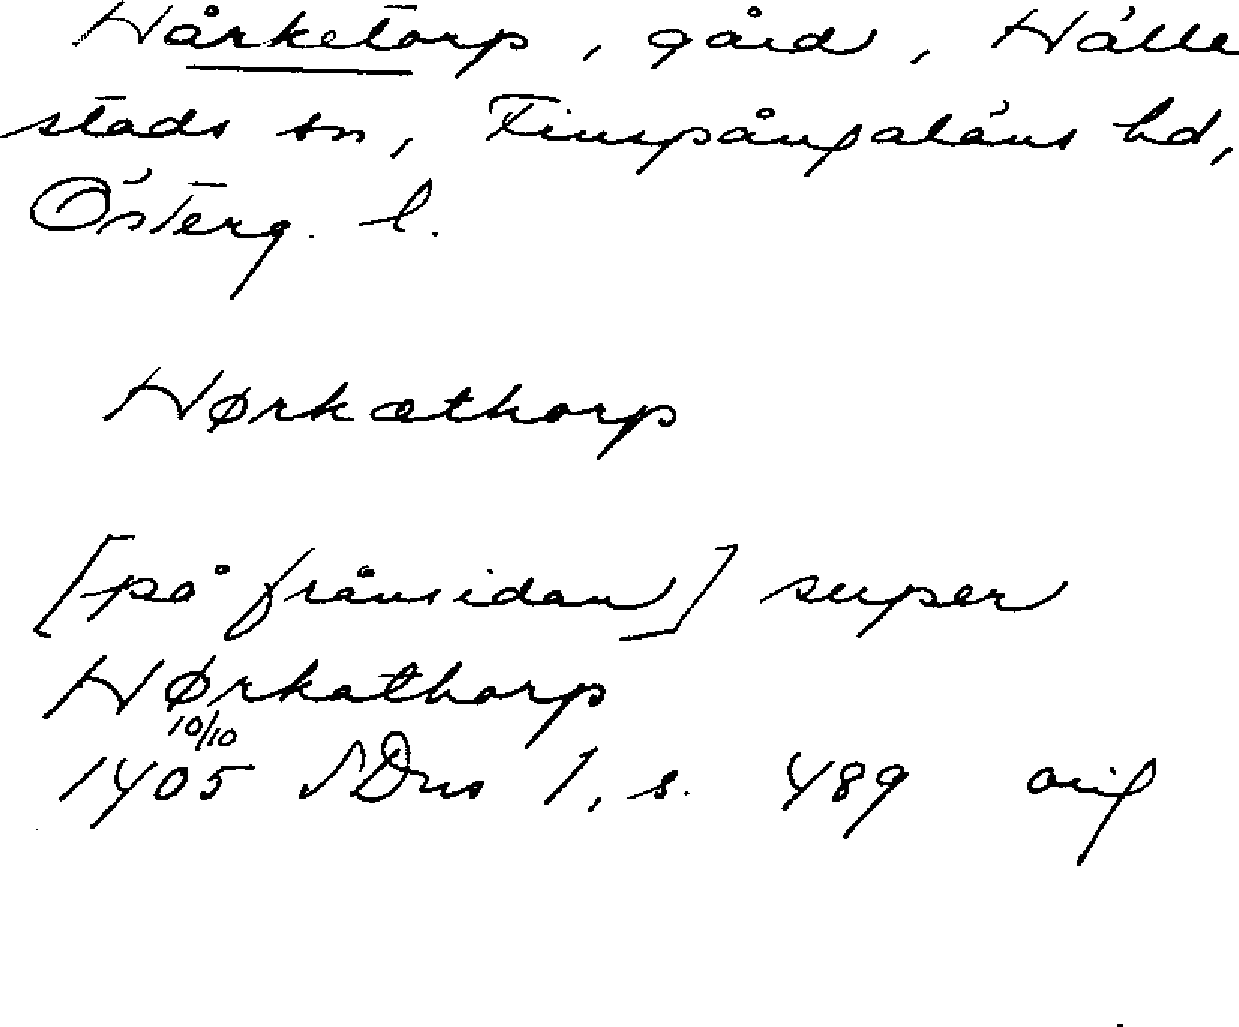 Hårketorp, gård, Hälle
stads sn, Finspångaläns hd,
Österg. l.
Hørkæthorp
[på frånsidan] super
Hørkathorp
10/10
1405 SDns 1, s. 489 orig